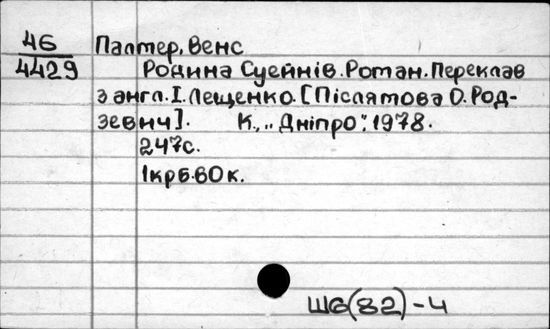 46
4429
Палтер, Венс
Родина Суейнів. Роман. Переклав
з англ. І. Лещенко. [Післямова О. Род-
зевич]. К., „Дніпро": 1978.
247с.
1крб.60к.
Ш6(82)-4